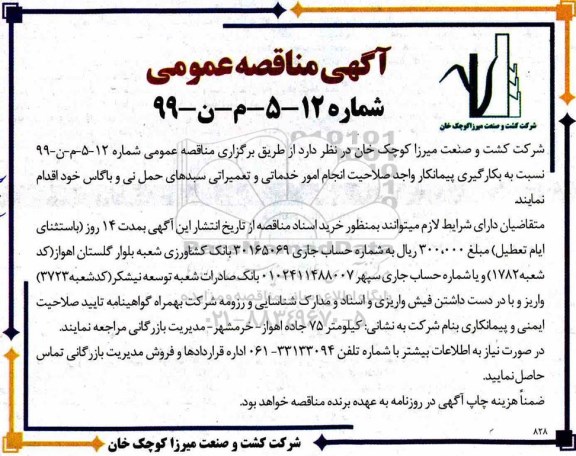 آگهی مناقصه عمومی
شماره ۱۲-۵-م-ن-۹۹
شرکت کشت و صنعت میرزا کوچک خان
شرکت کشت و صنعت میرزا کوچک خان در نظر دارد از طریق برگزاری مناقصه عمومی شماره ۱۲-۵-م-ن-۹۹
نسبت به بکارگیری پیمانکار واجد صلاحیت انجام امور خدماتی و تعمیراتی سبدهای حمل نی و باگاس خود اقدام
نمایند.
متقاضیان دارای شرایط لازم میتوانند بمنظور خرید اسناد مناقصه از تاریخ انتشار این آگهی بمدت ۱۴ روز (باستثنای
ایام تعطیل) مبلغ ۳۰۰،۰۰۰ ریال به شماره حساب جاری ۳۰۱۶۵۰۶۹ بانک کشاورزی شعبه بلوار گلستان اهواز(کد
شعبه۱۷۸۲) و یا شماره حساب جاری سپهر ۰۱۰۲۴۱۱۴۸۸۰۰۷ بانک صادرات شعبه توسعه نیشکر(کدشعبه۳۷۲۳)
واریز و با در دست داشتن فیش واریزی و اسناد و مدارک شناسایی و رزومه شرکت بهمراه گواهینامه تایید صلاحیت
ایمنی و پیمانکاری بنام شرکت به نشانی: کیلومتر ۷۵ جاده اهواز- خرمشهر- مدیریت بازرگانی مراجعه نمایند.
در صورت نیاز به اطلاعات بیشتر با شماره تلفن ۳۳۱۳۳۰۹۴-۰۶۱ اداره قراردادها و فروش مدیریت بازرگانی تماس
حاصل نمایید.
ضمناً هزینه چاپ آگهی در روزنامه به عهده برنده مناقصه خواهد بود.
۸۲۸
شرکت کشت و صنعت میرزا کوچک خان